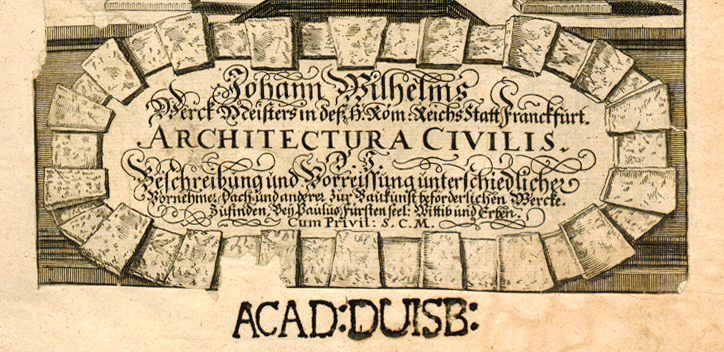 Johann Wilhelms
Werck Meisters in deß H: Röm: Reichs Statt Franckfürt.
ARCHITECTURA CIVILIS.
P. I.
Beschreibung und Vorreissung unterschiedlicher
Vornehmer Dach und anderer zür Baükunst beförderlichen Wercke.
Züfinden Beÿ Paulus Fürsten seel: Wittib und Erben.
Cum Privil: S. C. M.
ACAD:DUISB: